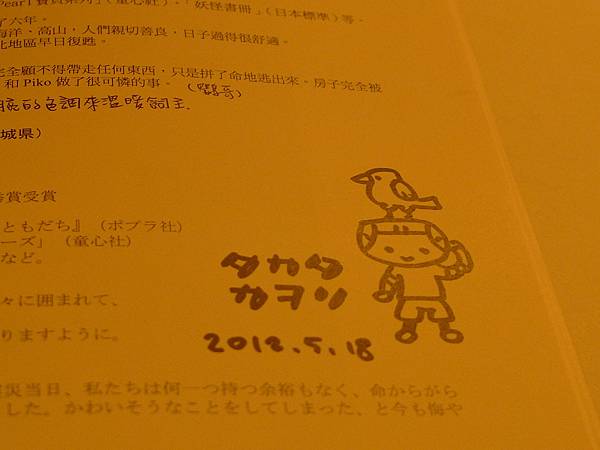 Pearl 寶貝系列」(童心社)、「妖怪書冊」(日本標準)等。
了六年。
海洋、高山，人們親切善良，日子過得很舒適。
北地區早日復甦。
完全顧不得帶走任何東西，只是拼了命地逃出來。房子完全被
和 Piko 做了很可憐的事。
(鸚哥)
的色調來溫暖飼主.
城県）
賞受賞
ともだち』（ポプラ社）
ーズ」（童心社）
など。
々に囲まれて、
りますように。
タカタ
カヲリ
2012.5.18
災当日、私たちは何一つ持つ余裕もなく、命からがら
した。かわいそうなことをしてしまった、と今も悔や